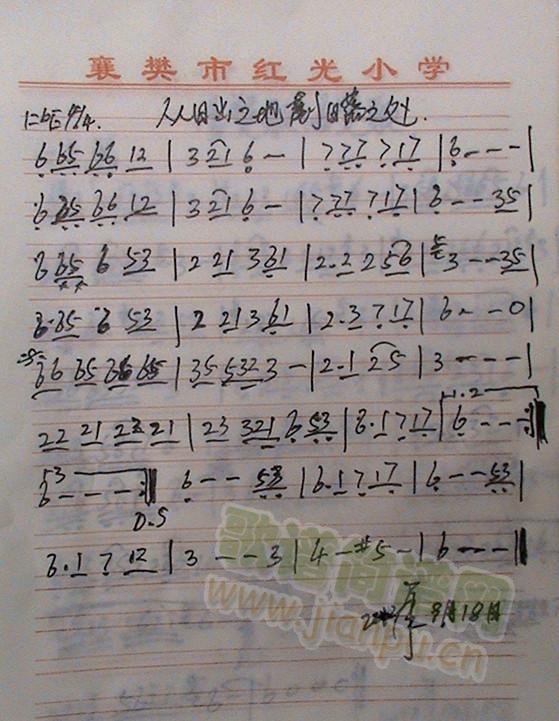 襄樊市红光小学
1=bE 4/4. 从日出之地到日落之处.
6 65 66 12 | 3 21 6 - | 7 77 7 17 | 6 - - - |
6 65 66 12 | 3 21 6 - | 7 77 7 17 | 6 - - 35 |
6 65 6 53 | 2 21 3 61 | 2·2 2 56 | 3 - - 35 |
6·65 6 53 | 2 21 3 61 | 2·3 7 17 | 6 - - 0 |
66 65 66 65 | 35 532 3 - | 2·1 25 | 3 - - - |
22 21 23 21 | 23 321 6 53 | 6·1 7 17 | 6 - - - :|
1. 2
3
6 - - - :| 6 - - 53 | 6·1 7 17 | 6 - - 53 |
D.S
6·1 7 12 | 3 - - 3 | 4 - #5 - | 6 - - - ||
9月18日
歌谱简谱网
www.jianpu.cn